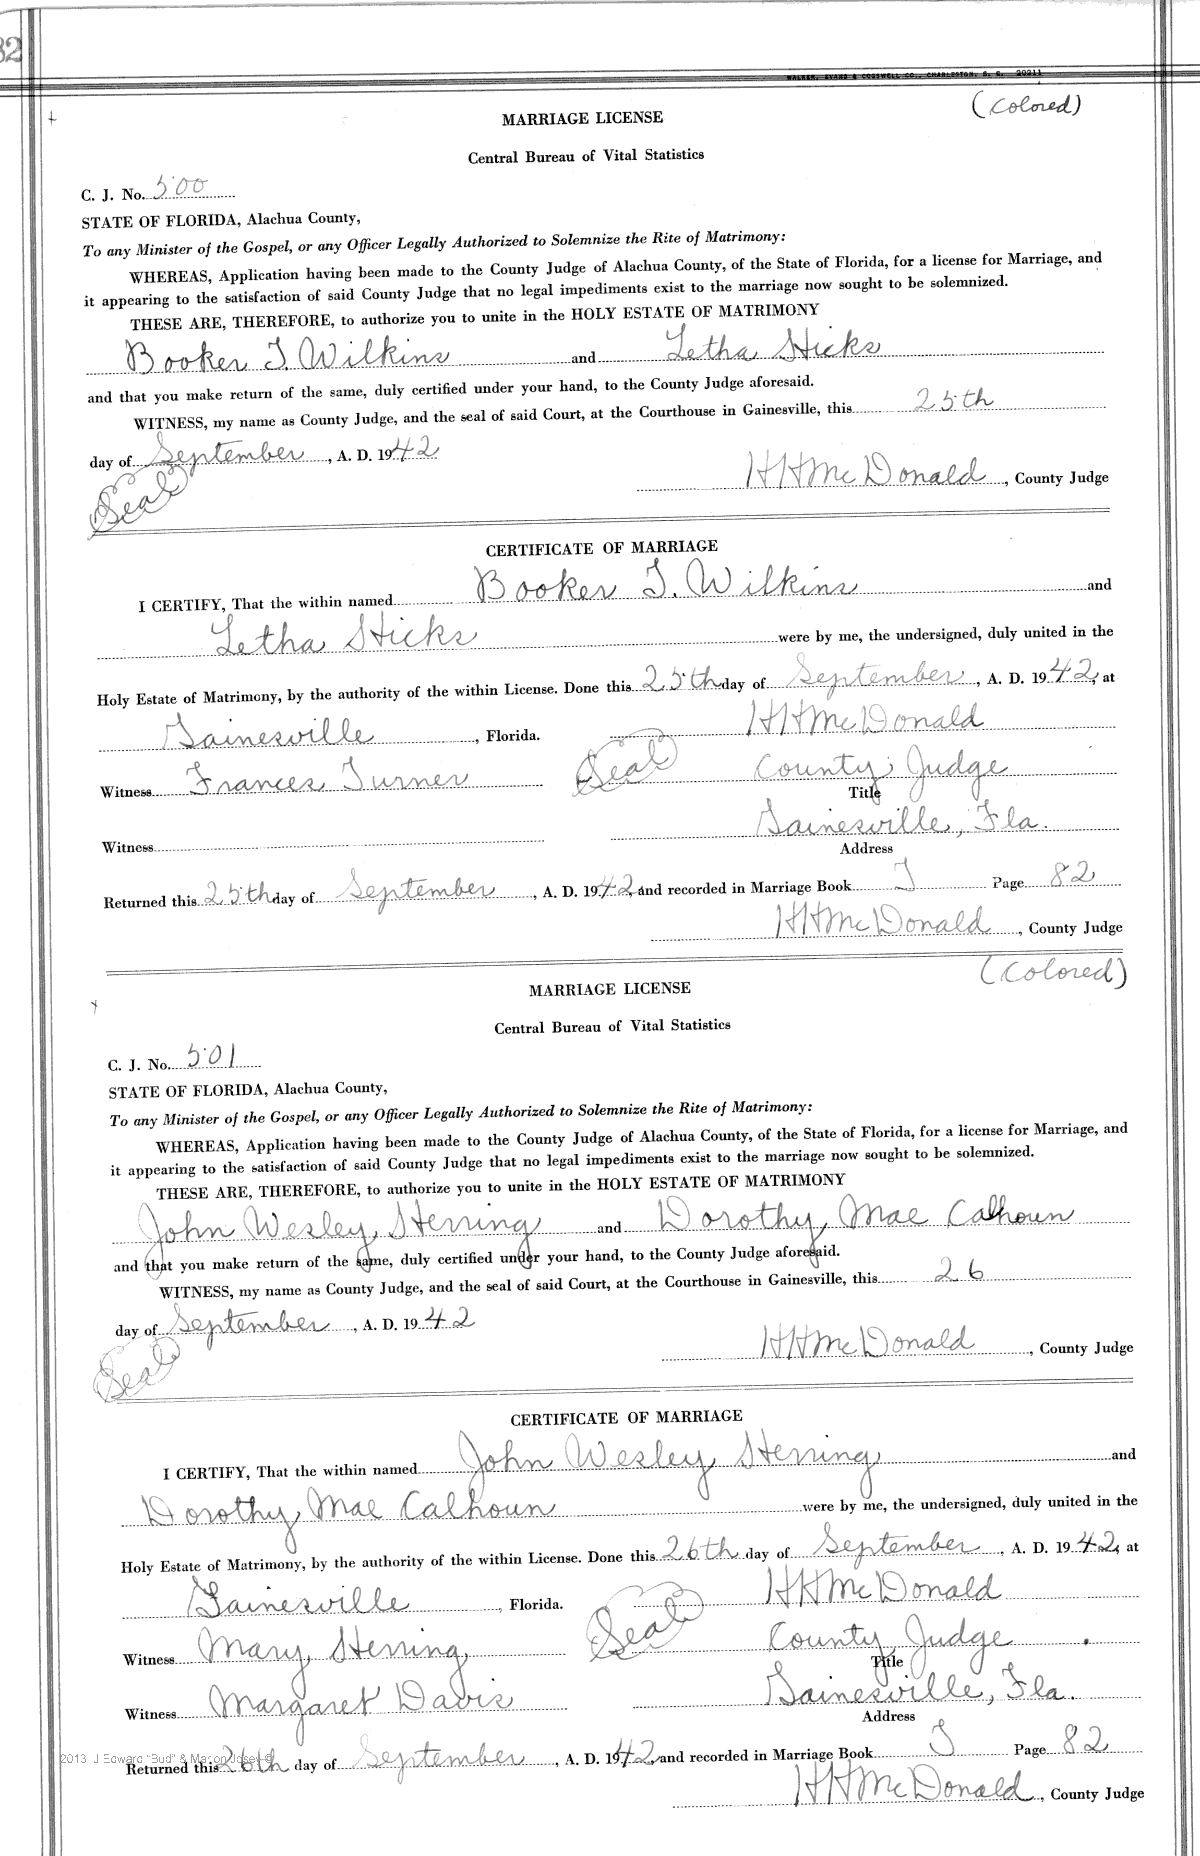 82
WALKER, EVANS & COGSWELL CO., CHARLESTON, S. C. 20211
(Colored)
MARRIAGE LICENSE
Central Bureau of Vital Statistics
C. J. No. 500
STATE OF FLORIDA, Alachua County,
To any Minister of the Gospel, or any Officer Legally Authorized to Solemnize the Rite of Matrimony:
WHEREAS, Application having been made to the County Judge of Alachua County, of the State of Florida, for a license for Marriage, and
it appearing to the satisfaction of said County Judge that no legal impediments exist to the marriage now sought to be solemnized.
THESE ARE, THEREFORE, to authorize you to unite in the HOLY ESTATE OF MATRIMONY
Booker T. Wilkins and Letha Hicks
and that you make return of the same, duly certified under your hand, to the County Judge aforesaid.
WITNESS, my name as County Judge, and the seal of said Court, at the Courthouse in Gainesville, this 25th
day of September, A. D. 1942
HHMcDonald, County Judge
Seal
CERTIFICATE OF MARRIAGE
I CERTIFY, That the within named Booker T. Wilkins and
Letha Hicks were by me, the undersigned, duly united in the
Holy Estate of Matrimony, by the authority of the within License. Done this 25th day of September, A. D. 1942, at
Gainesville, Florida. HHMcDonald
Seal
Witness Frances Turner County Judge
Title
Gainesville, Fla.
Witness
Address
Returned this 25th day of September, A. D. 1942, and recorded in Marriage Book T Page 82
HHMcDonald, County Judge
(Colored)
MARRIAGE LICENSE
Central Bureau of Vital Statistics
C. J. No. 501
STATE OF FLORIDA, Alachua County,
To any Minister of the Gospel, or any Officer Legally Authorized to Solemnize the Rite of Matrimony:
WHEREAS, Application having been made to the County Judge of Alachua County, of the State of Florida, for a license for Marriage, and
it appearing to the satisfaction of said County Judge that no legal impediments exist to the marriage now sought to be solemnized.
THESE ARE, THEREFORE, to authorize you to unite in the HOLY ESTATE OF MATRIMONY
John Wesley Herring and Dorothy Mae Calhoun
and that you make return of the same, duly certified under your hand, to the County Judge aforesaid.
WITNESS, my name as County Judge, and the seal of said Court, at the Courthouse in Gainesville, this 26
day of September, A. D. 1942
HHMcDonald, County Judge
Seal
CERTIFICATE OF MARRIAGE
I CERTIFY, That the within named John Wesley Herring and
Dorothy Mae Calhoun were by me, the undersigned, duly united in the
Holy Estate of Matrimony, by the authority of the within License. Done this 26th day of September, A. D. 1942, at
Gainesville, Florida. HHMcDonald
Seal
Witness Mary Herring County Judge
Title
Witness Margaret Davis Gainesville, Fla.
Address
2013 J Edward "Bud" & Marion Josey ©
Returned this 26th day of September, A. D. 1942, and recorded in Marriage Book T Page 82
HHMcDonald, County Judge